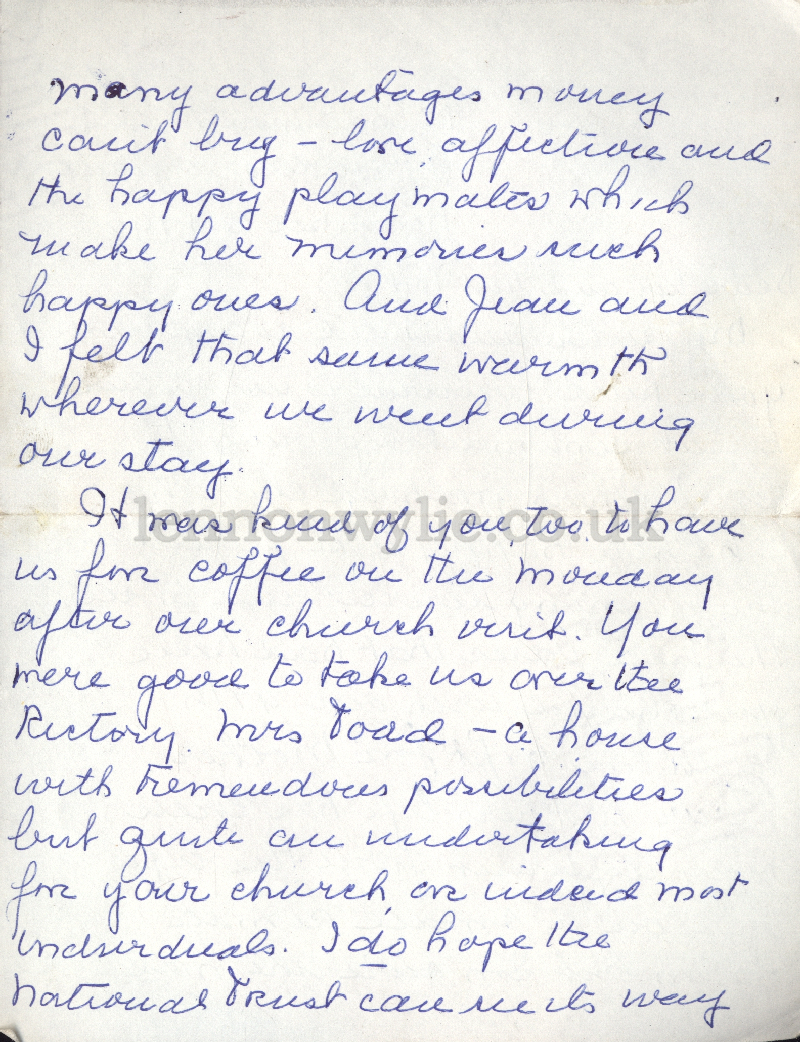 many advantages money
can't buy – love, affection and
the happy playmates which
make her memories such
happy ones. And Jean and
I felt that same warmth
wherever we went during
our stay.
It was kind of you, too, to have
us for coffee on the Monday
after our church visit. You
were good to take us over the
Rectory Mrs Toad – a house
with tremendous possibilities
but quite an undertaking
for your church, or indeed most
individuals. I do hope the
National Trust can see its way
lennonwylie.co.uk